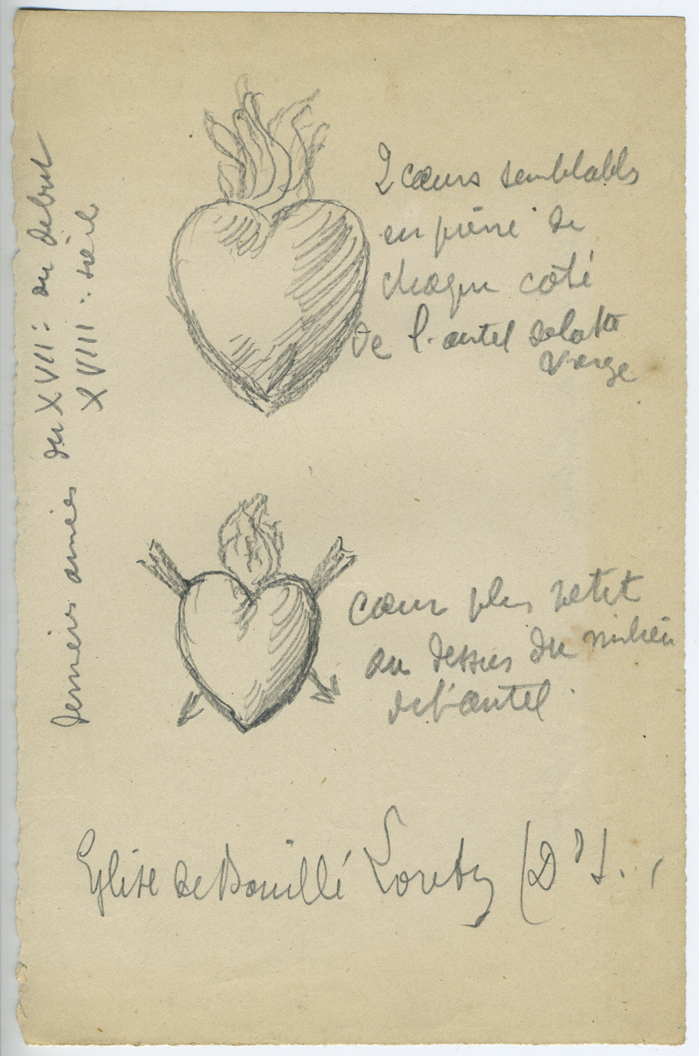 2 cœurs semblables
en pierre de
chaque côté
de l'autel de la Ste
Vierge
cœur plus petit
au dessus du milieu
de l'autel.
Eglise de Bouillé Loretz (D. S.
dernières années du XVII: ou début
XVIII. siècle